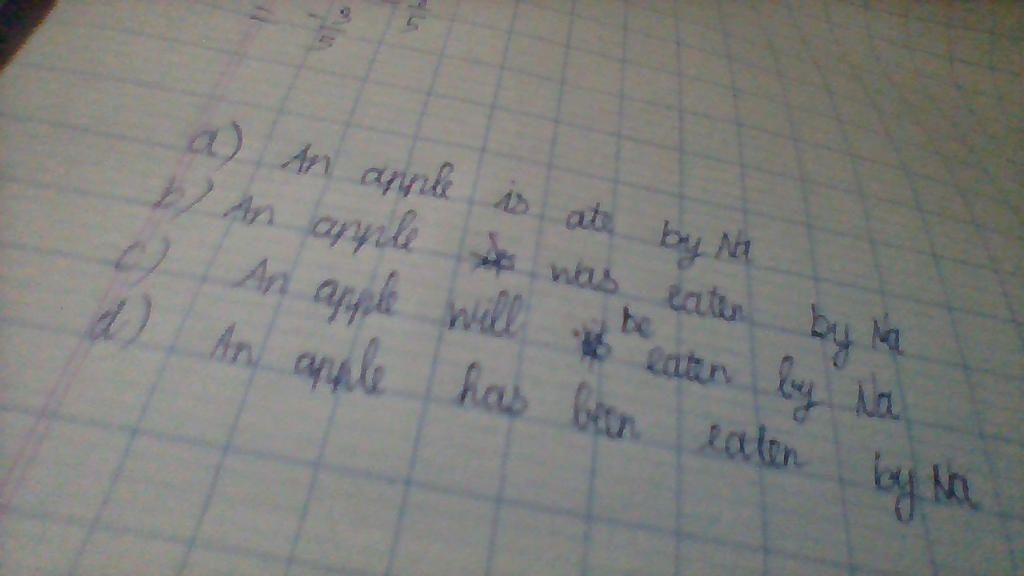 = -3/5
a) An apple is ate by Na
b) An apple was eaten by Na
c) An apple will be eaten by Na
d) An apple has been eaten by Na